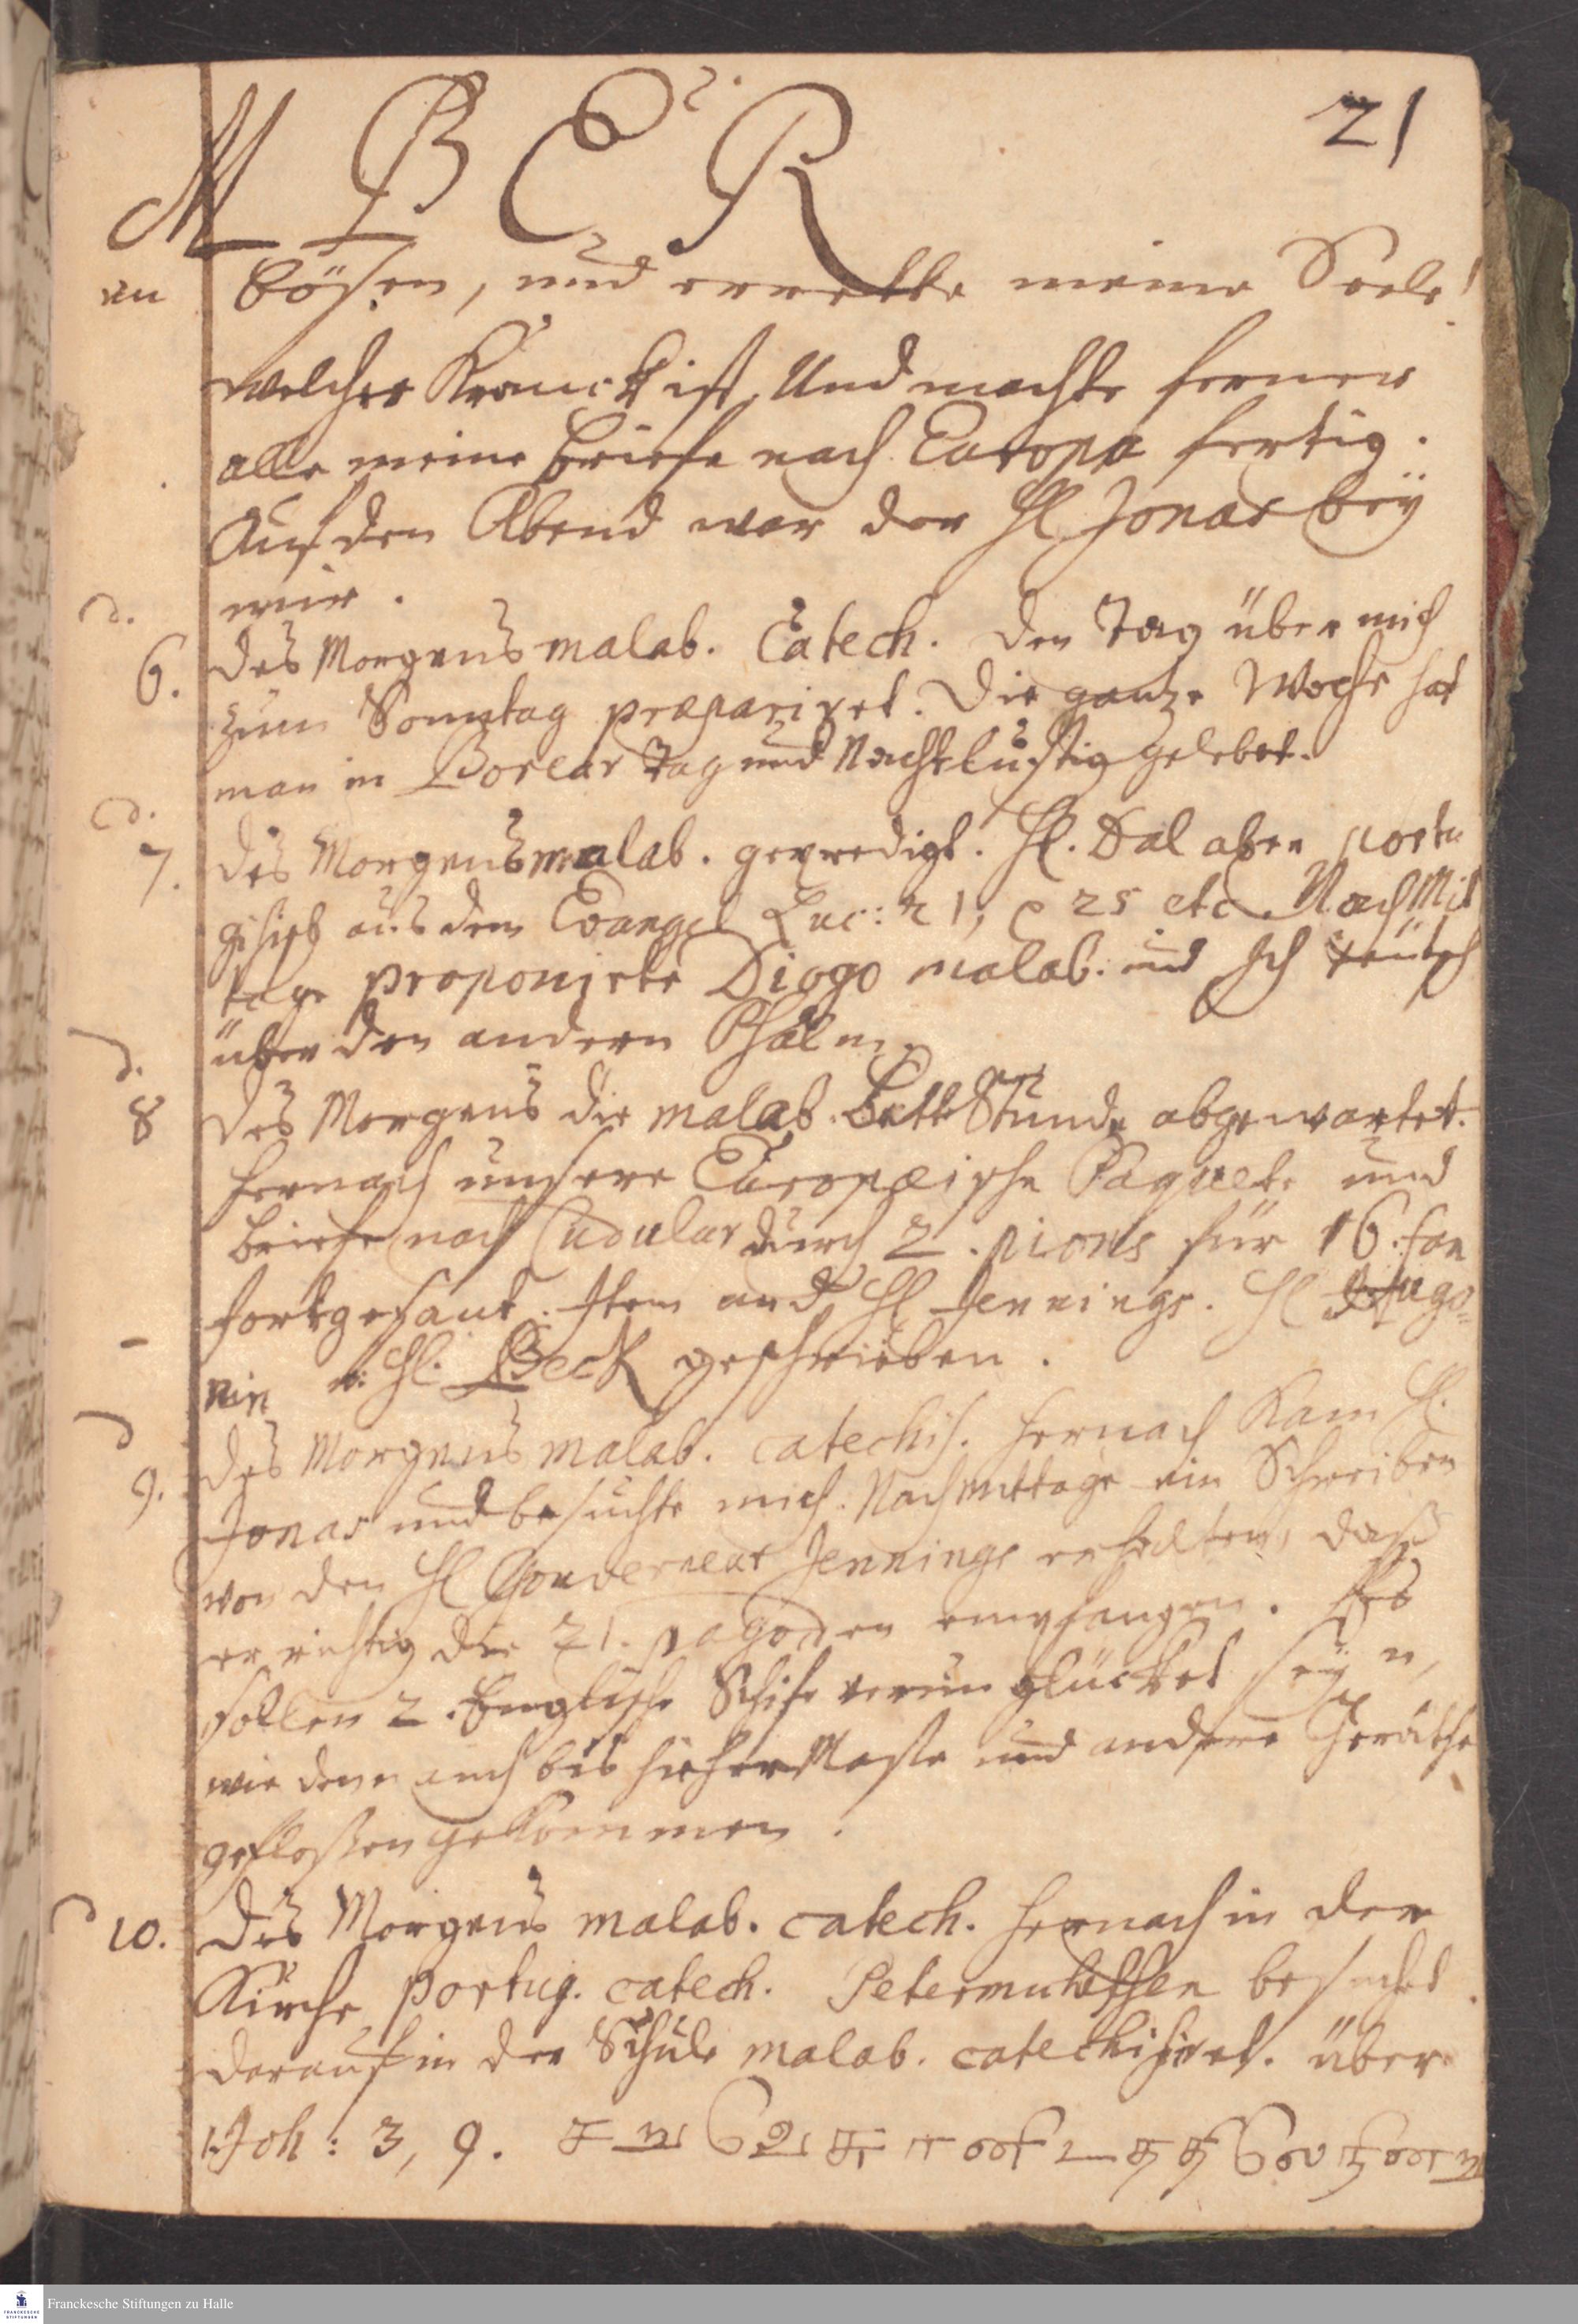 21
M B E R
en bösen, und errette meine Seele!
welcher Kranck ist. Und machte ferner
alle meine Briefe nach Europa fertig.
Auf den Abend war der H. Jonas bey
mir.
d.
6. Des Morgens malab. Catech. den Tag über mich
zum Sonntag præpariret. Die gantze Woche hat
man in Borear Tag und Nacht lustig gelebet.
d.
7. Des Morgens malab. gepredigt. H. Dal aber portu
gisisch aus dem Evangel Luc: 21, 25 etc. NachMit
tage proponirte Diogo malab. und Ich teütsch
über den andern Psalm.
d.
8 Des Morgens die malab. Bett Stunde abgewartet.
hernach unsere Europæische Paquete und
Briefe nach Cudulur durch 2. pions für 16. fan
fortgesant. Item and H Jennings. H Hugo=
nin u: H. Beck geschrieben.
d
9. Des Morgens malab. catechis. hernach Kam H.
Jonas und besuchte mich. Nachmittage ein Schreiben
von den H Gouverneur Jennings erhalten, daß
er richtig die 21. pagoden empfangen. Es
sollen 2. Englische Schife verunglücket seyn,
wie denn auch bis hieher Maste und andere Geräthe
gefloßen gekommen.
d
10. Des Morgens malab. catech. hernach in der
Kirche portug. catech. Petermutethen besuchet.
darauf in der Schule malab. catechisiret. über
1. Joh: 3, 9.
Franckesche Stiftungen zu Halle